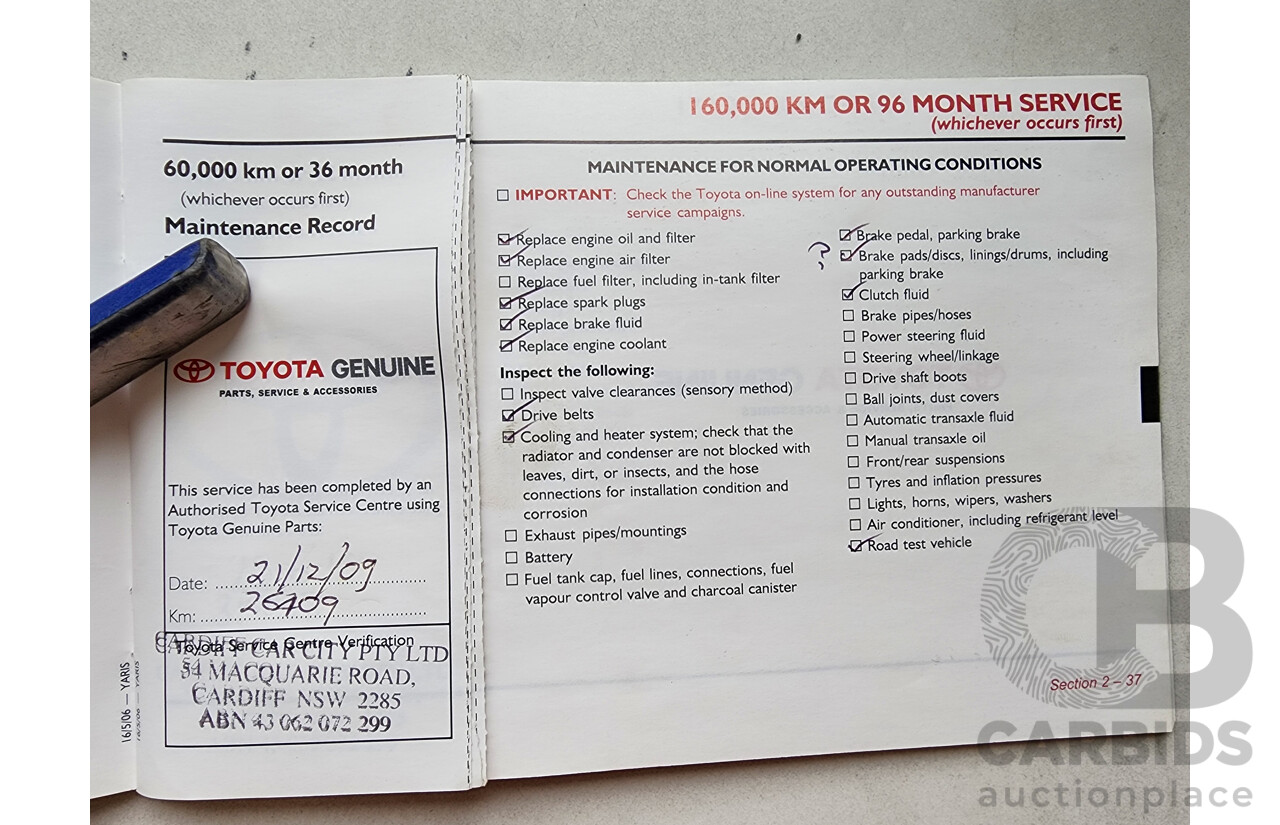 60,000 km or 36 month
(whichever occurs first)
Maintenance Record
TOYOTA GENUINE
PARTS, SERVICE & ACCESSORIES
This service has been completed by an
Authorised Toyota Service Centre using
Toyota Genuine Parts:
Date: 21/12/09
Km: 26409
Toyota Service Centre Verification
CARDIFF CAR CITY PTY LTD
54 MACQUARIE ROAD,
CARDIFF NSW 2285
ABN 43 062 072 299
16/5/06 — YARIS
160,000 KM OR 96 MONTH SERVICE
(whichever occurs first)
MAINTENANCE FOR NORMAL OPERATING CONDITIONS
IMPORTANT: Check the Toyota on-line system for any outstanding manufacturer
service campaigns.
Replace engine oil and filter
Replace engine air filter
Replace fuel filter, including in-tank filter
Replace spark plugs
Replace brake fluid
Replace engine coolant
Inspect the following:
Inspect valve clearances (sensory method)
Drive belts
Cooling and heater system; check that the
radiator and condenser are not blocked with
leaves, dirt, or insects, and the hose
connections for installation condition and
corrosion
Exhaust pipes/mountings
Battery
Fuel tank cap, fuel lines, connections, fuel
vapour control valve and charcoal canister
Brake pedal, parking brake
? Brake pads/discs, linings/drums, including
parking brake
Clutch fluid
Brake pipes/hoses
Power steering fluid
Steering wheel/linkage
Drive shaft boots
Ball joints, dust covers
Automatic transaxle fluid
Manual transaxle oil
Front/rear suspensions
Tyres and inflation pressures
Lights, horns, wipers, washers
Air conditioner, including refrigerant level
Road test vehicle
Section 2 – 37
CARBIDS
auctionplace